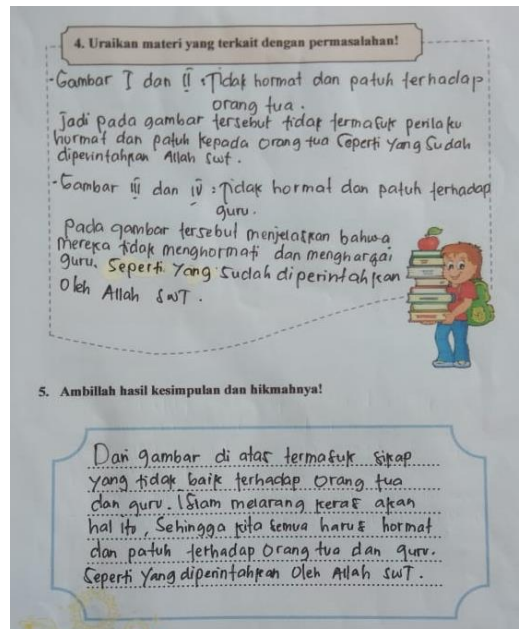 4. Uraikan materi yang terkait dengan permasalahan!
-Gambar I dan II : Tidak hormat dan patuh terhadap
orang tua.
Jadi pada gambar tersebut tidak termasuk perilaku
hormat dan patuh kepada orang tua seperti yang sudah
diperintahkan Allah swt.
-Gambar iii dan iv : Tidak hormat dan patuh terhadap
guru.
Pada gambar tersebut menjelaskan bahwa
mereka tidak menghormati dan menghargai
guru. Seperti yang sudah diperintahkan
oleh Allah SWT.
5. Ambillah hasil kesimpulan dan hikmahnya!
Dari gambar di atas termasuk sikap
yang tidak baik terhadap orang tua
dan guru. Islam melarang keras akan
hal itu, Sehingga kita semua harus hormat
dan patuh terhadap orang tua dan guru.
Seperti yang diperintahkan oleh Allah SWT.